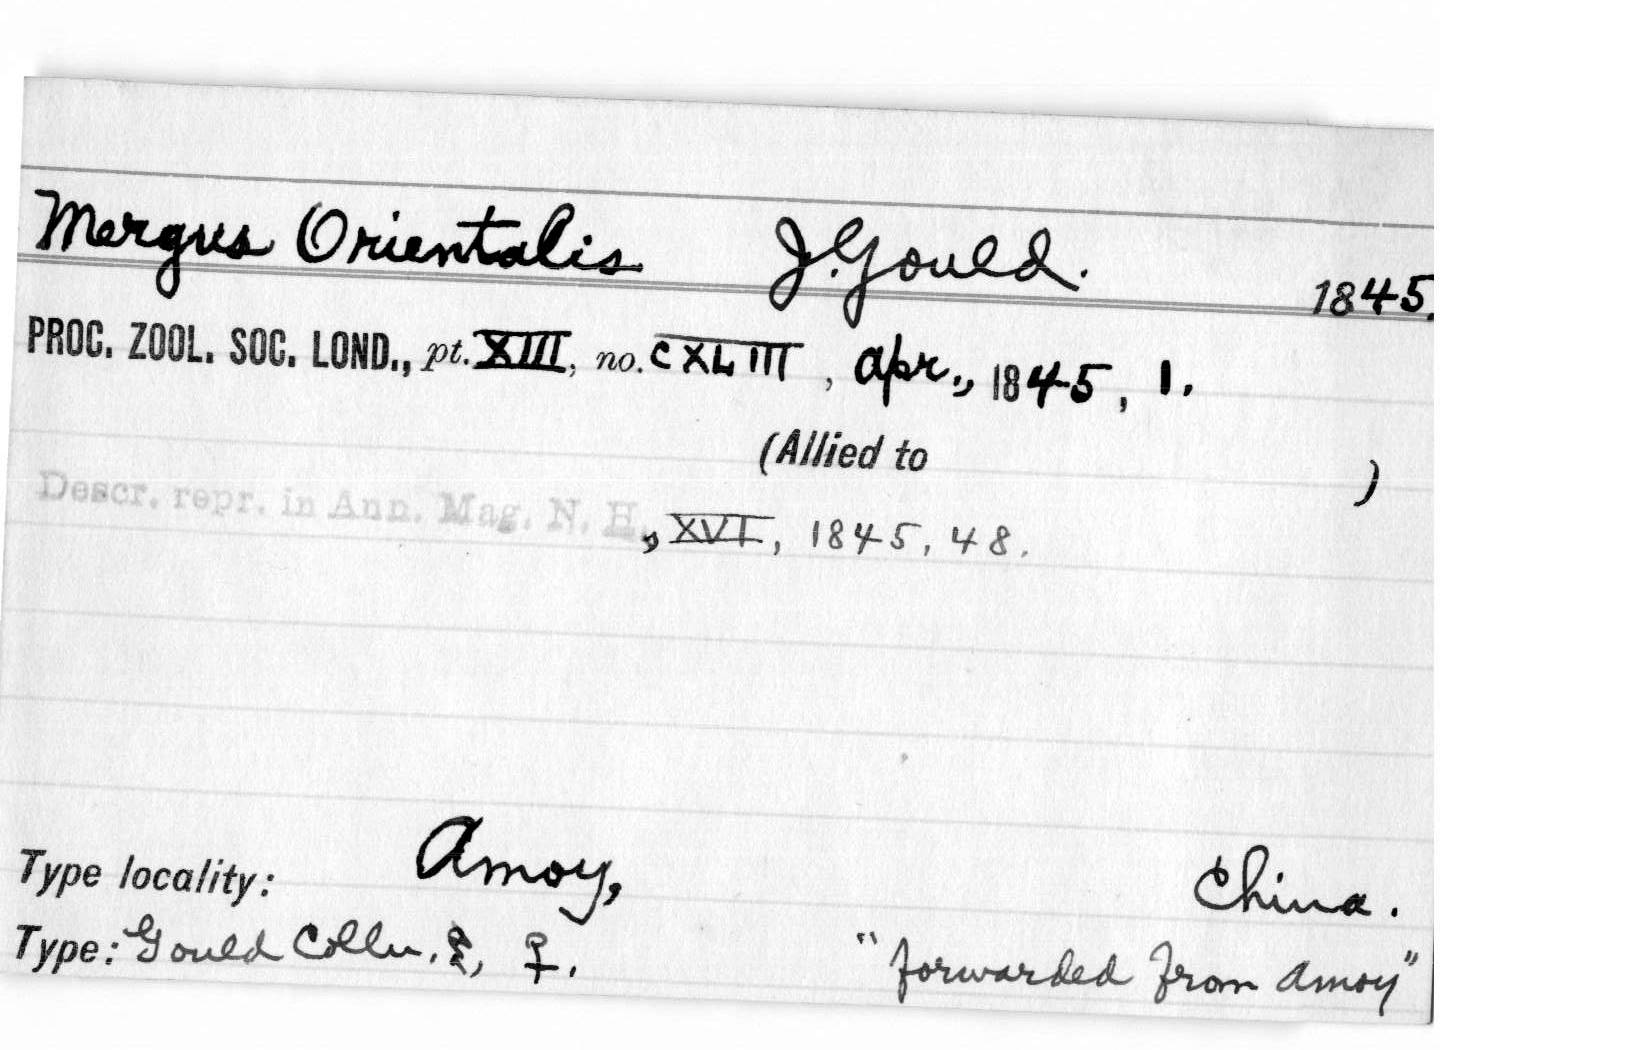 Mergus Orientalis J. Gould. 1845.
PROC. ZOOL. SOC. LOND., pt. XIII, no. CXLIII, Apr., 1845, 1.
(Allied to )
Descr. repr. in Ann. Mag. N. H., XVI, 1845, 48.
Type locality: Amoy, China.
Type: Gould Colln., ♀. "forwarded from Amoy"